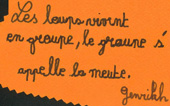 Les loups vivent
en groupe, le groupe s'
appelle la meute.
Genrikh